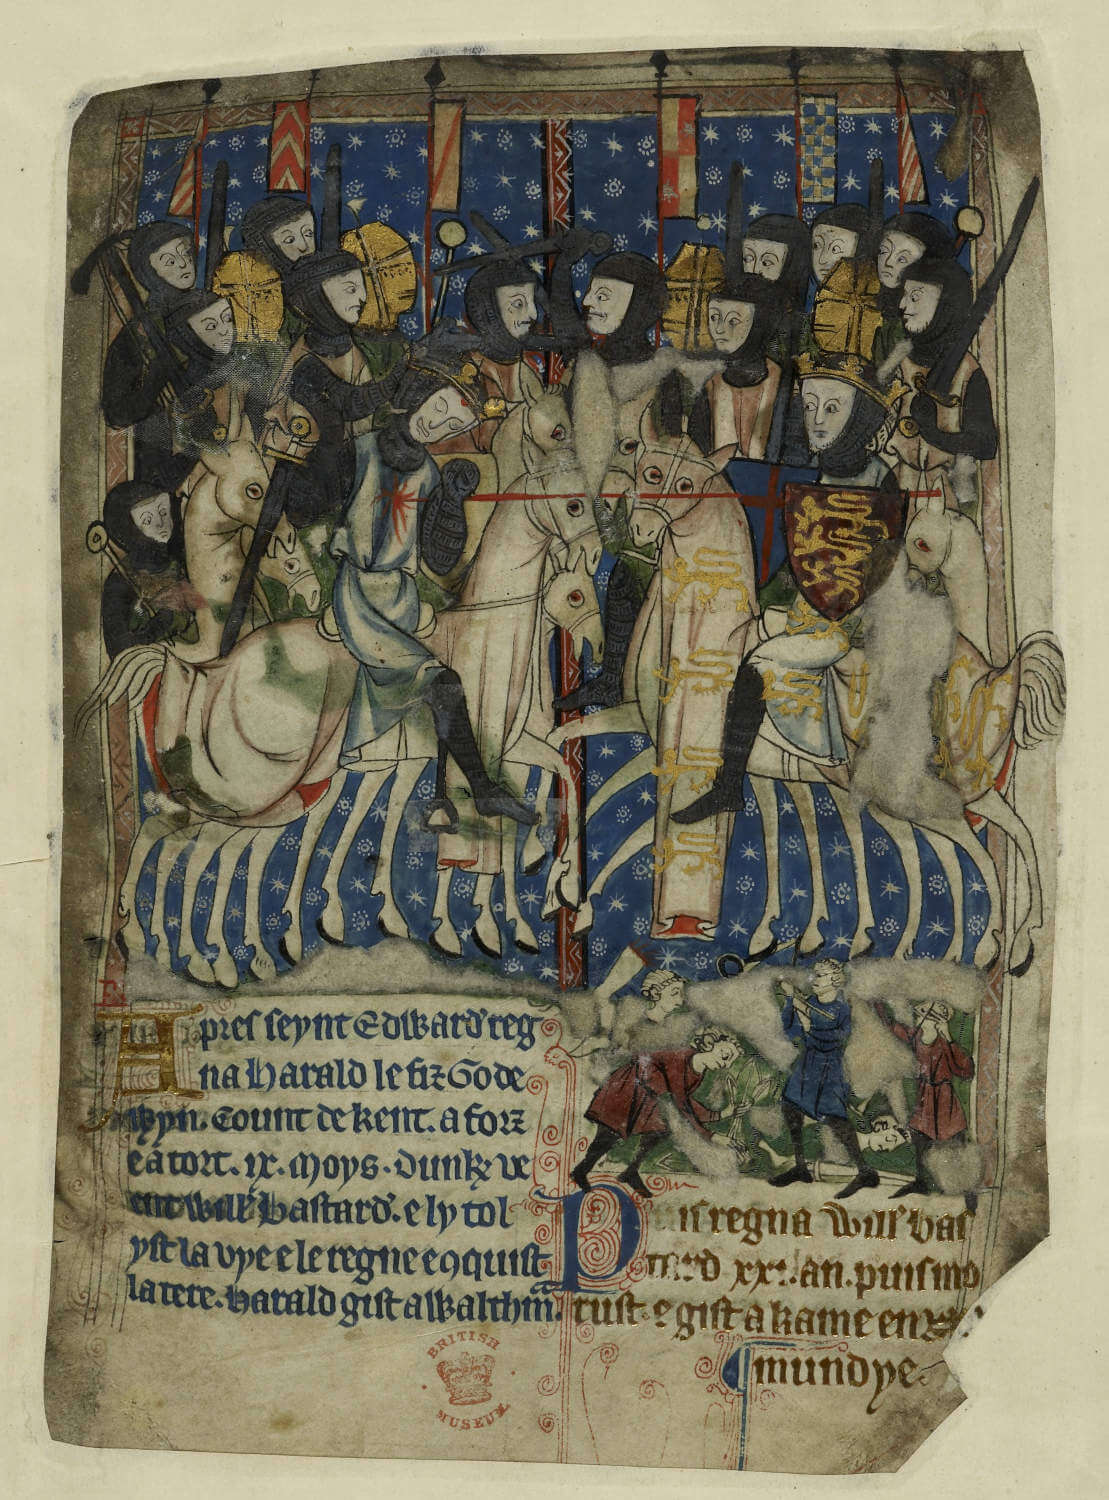 Apres seynt Edward' reg
na Harald le fiz Gode
wyn. Count de kent. a forz
e a tort. ix. moys. dunk ve
ent will' bastard'. e ly tol
yst la vye e le regne e 9quist
la tere. harald gist a Walthm.
Puis regna Will' bas
tard xxi. an. puis mo
rust. e gist a kame en
mundye
BRITISH
MUSEUM